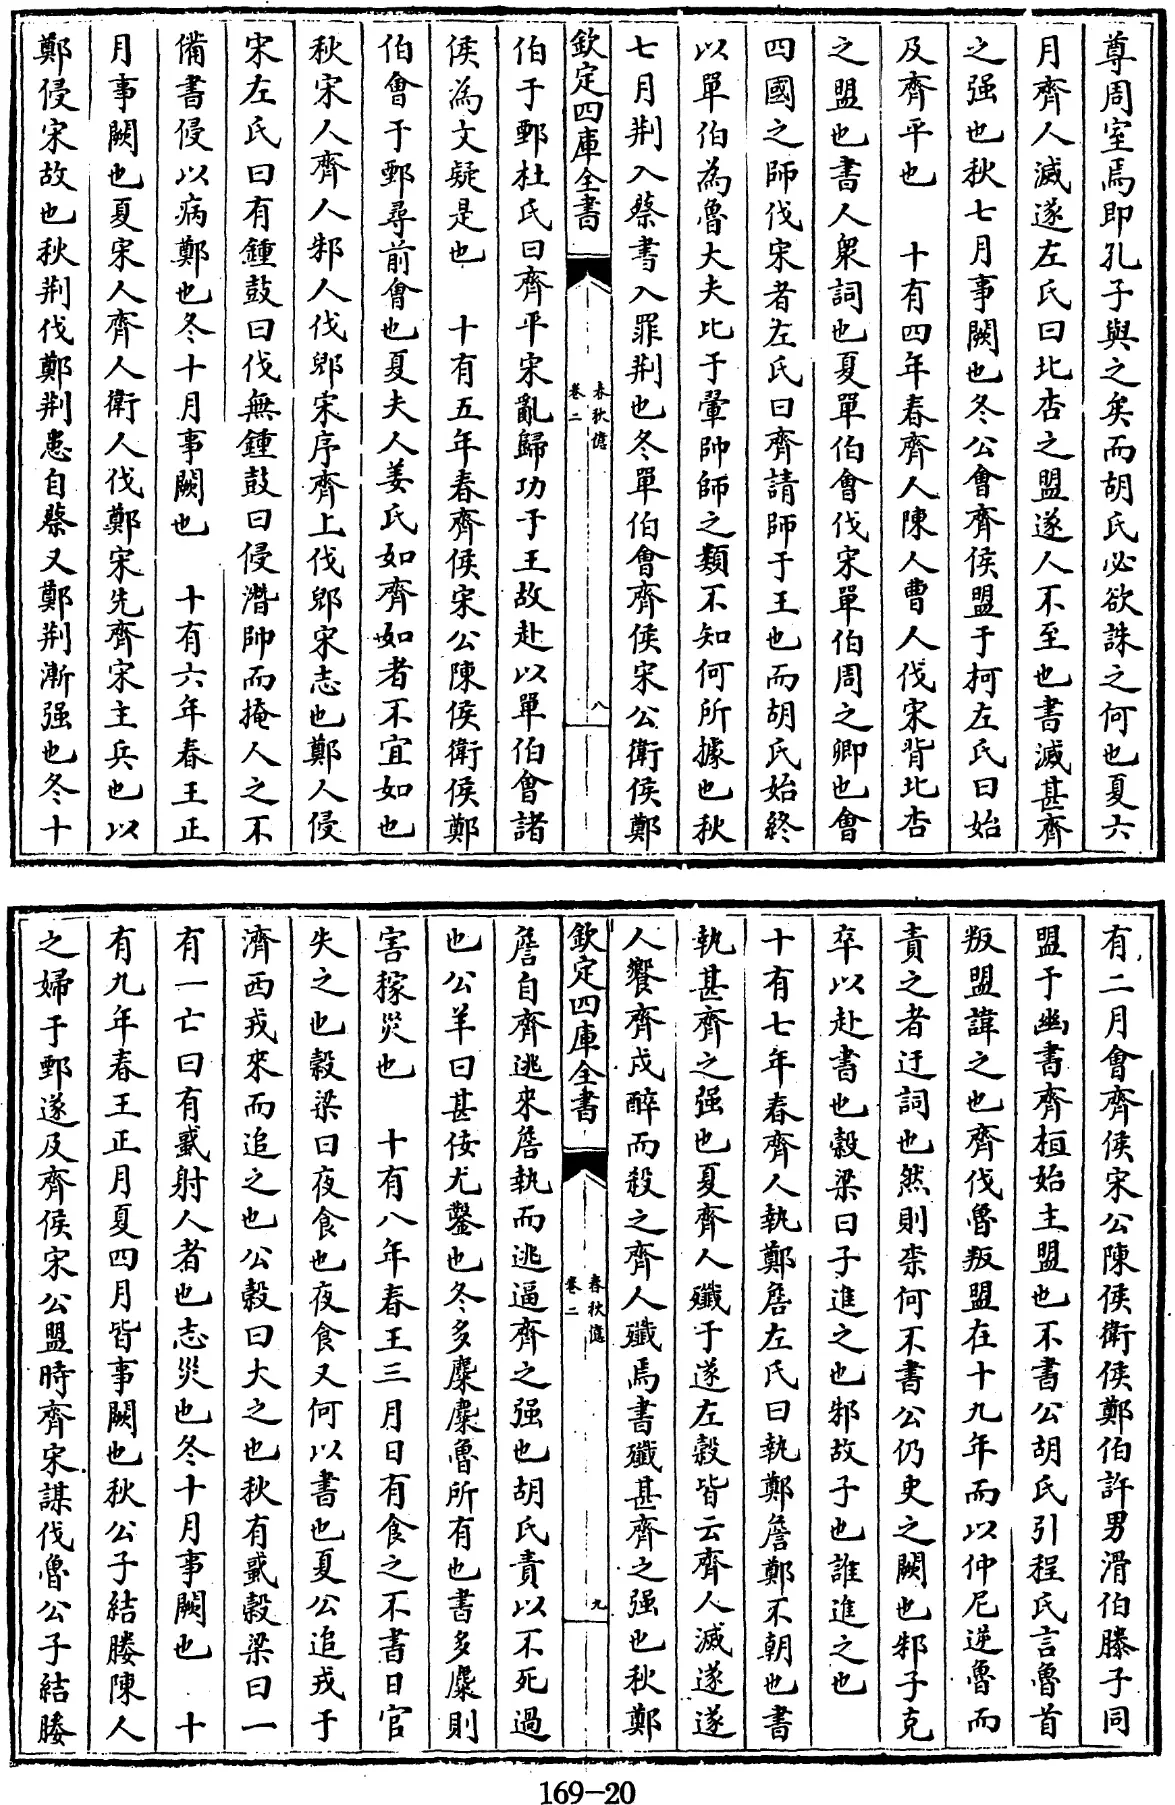 尊周室焉即孔子與之矣而胡氏必欲誅之何也夏六
月齊人滅遂左氏曰北杏之盟遂人不至也書滅甚齊
之强也秋七月事闕也冬公會齊侯盟于柯左氏曰始
及齊平也　十有四年春齊人陳人曹人伐宋背北杏
之盟也書人衆詞也夏單伯會伐宋單伯周之卿也會
四國之師伐宋者左氏曰齊請師于王也而胡氏始終
以單伯為魯大夫比于翬帥師之類不知何所據也秋
七月荆入蔡書入罪荆也冬單伯會齊侯宋公衛侯鄭
欽定四庫全書
春秋億
卷二
八
伯于鄄杜氏曰齊平宋亂歸功于王故赴以單伯會諸
侯為文疑是也　十有五年春齊侯宋公陳侯衛侯鄭
伯會于鄄尋前會也夏夫人姜氏如齊如者不宜如也
秋宋人齊人邾人伐郳宋序齊上伐郳宋志也鄭人侵
宋左氏曰有鍾鼓曰伐無鍾鼓曰侵潛師而掩人之不
備書侵以病鄭也冬十月事闕也　十有六年春王正
月事闕也夏宋人齊人衛人伐鄭宋先齊宋主兵也以
鄭侵宋故也秋荆伐鄭荆患自蔡又鄭荆漸强也冬十
有二月會齊侯宋公陳侯衛侯鄭伯許男滑伯滕子同
盟于幽書齊桓始主盟也不書公胡氏引程氏言魯首
叛盟諱之也齊伐魯叛盟在十九年而以仲尼逆魯而
責之者迂詞也然則柰何不書公仍史之闕也邾子克
卒以赴書也穀梁曰子進之也邾故子也誰進之也
十有七年春齊人執鄭詹左氏曰執鄭詹鄭不朝也書
執甚齊之强也夏齊人殱于遂左穀皆云齊人滅遂遂
人饗齊戍醉而殺之齊人殱焉書殱甚齊之强也秋鄭
欽定四庫全書
春秋億
卷二
九
詹自齊逃來詹執而逃逼齊之强也胡氏責以不死過
也公羊曰甚佞尤鑿也冬多麋麋魯所有也書多麋則
害稼災也　十有八年春王三月日有食之不書日官
失之也穀梁曰夜食也夜食又何以書也夏公追戎于
濟西戎來而追之也公穀曰大之也秋有䘌穀梁曰一
有一亡曰有䘌射人者也志災也冬十月事闕也　十
有九年春王正月夏四月皆事闕也秋公子結媵陳人
之婦于鄄遂及齊侯宋公盟時齊宋謀伐魯公子結媵
169-20